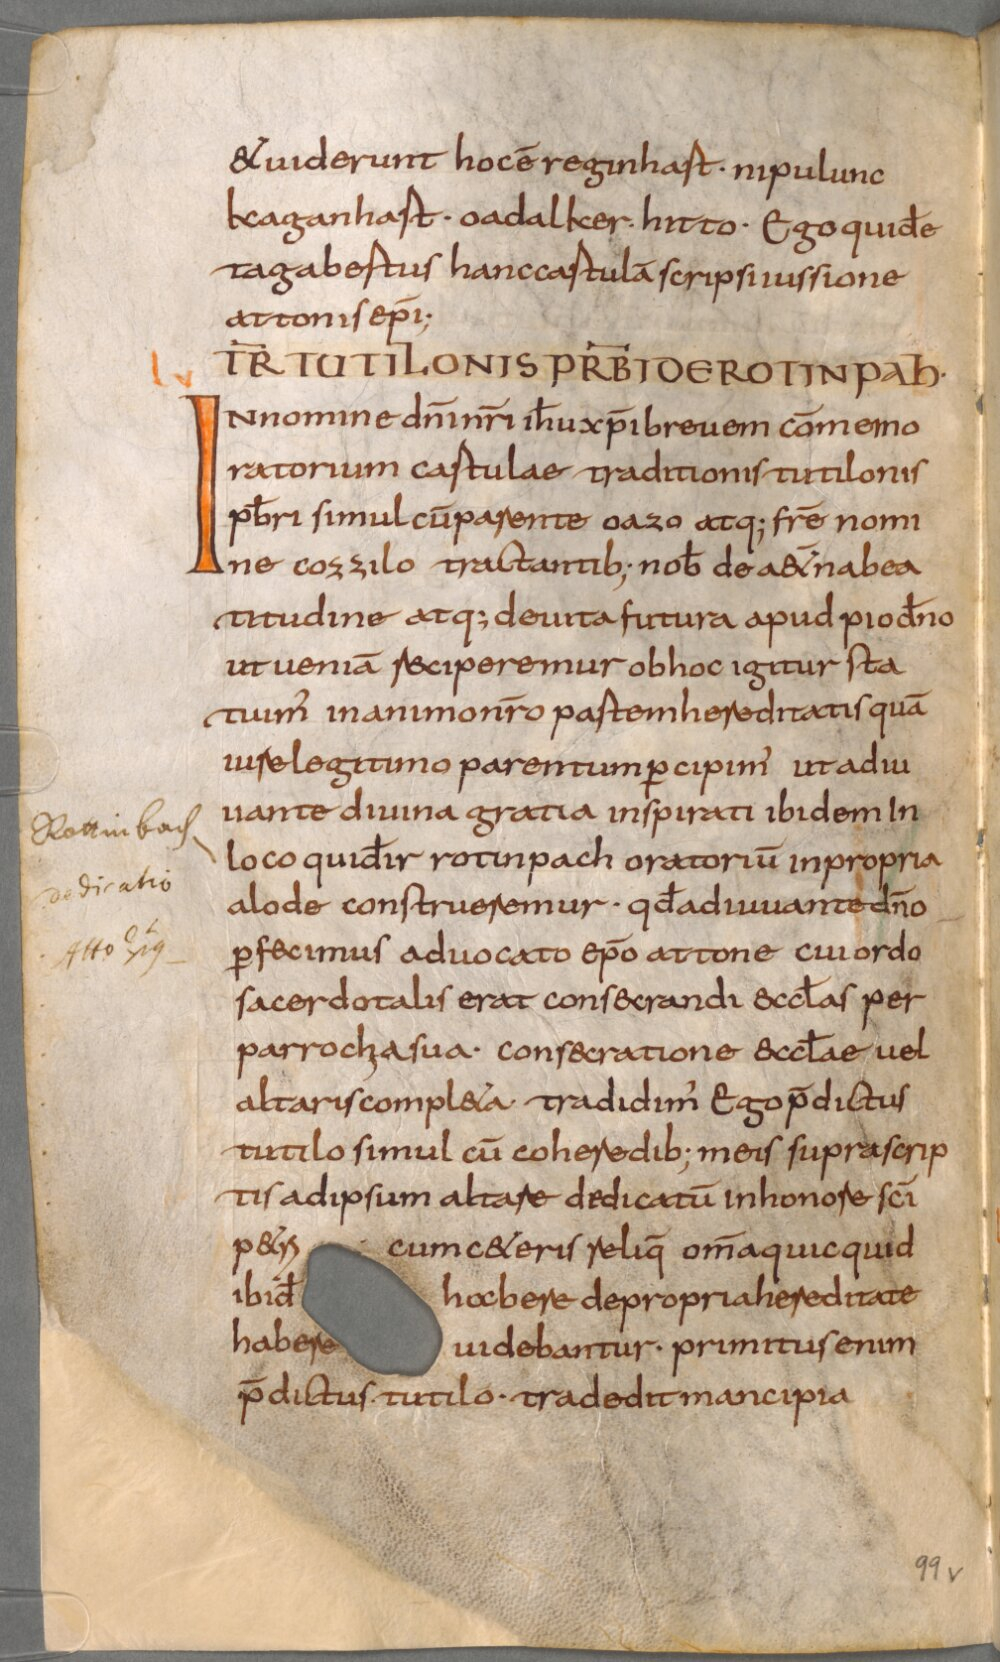 &uiderunt hocē reginhart· nipulunc
kaganhart· oadalker· hitto· Ego quid̄e
tagabertus hanc cartulā scripsi iussione
attonis ep̄i;
TR̄ TUTILONIS PR̄BI DE ROTINPAH·
lv
IN nomine dn̄i nr̄i ih̄u xp̄i breuem cōmemo
ratorium cartulae traditionis tutilonis
pb̄ri simul cū parente oazo atq; fr̄e nomi
ne cozzilo tractantib; nob̄ de a&́na bea
titudine atq; de uita futura apud pio dn̄o
ut ueniā reciperemur ob hoc igitur sta
tuim' in animo nr̄o partem hereditatis quā
iure legitimo parentum ꝑcipim' ut adiu
uante diuina gratia inspirati ibidem In
loco qui dr̄ rotinpach oratoriū in propria
alode construeremur· qd̄ adiuuante dn̄o
ꝑfecimus aduocato ep̄o attone cui ordo
sacerdotalis erat consecrandi eccl̄as per
parrochia sua· consecratione eccl̄ae uel
altaris compl&a tradidim' Ego p̄dictus
tutilo simul cū coheredib; meis suprascrip
tis ad ipsum altare dedicatū in honore sc̄i
p&ri cum c&́eris reliq̄ om̄a quicquid
ibid̄ hocbere de propria hereditate
habere uidebantur· primitus enim
p̄dictus tutilo· tradedit mancipia
Rottinbach
dedicatio
Atto
99v